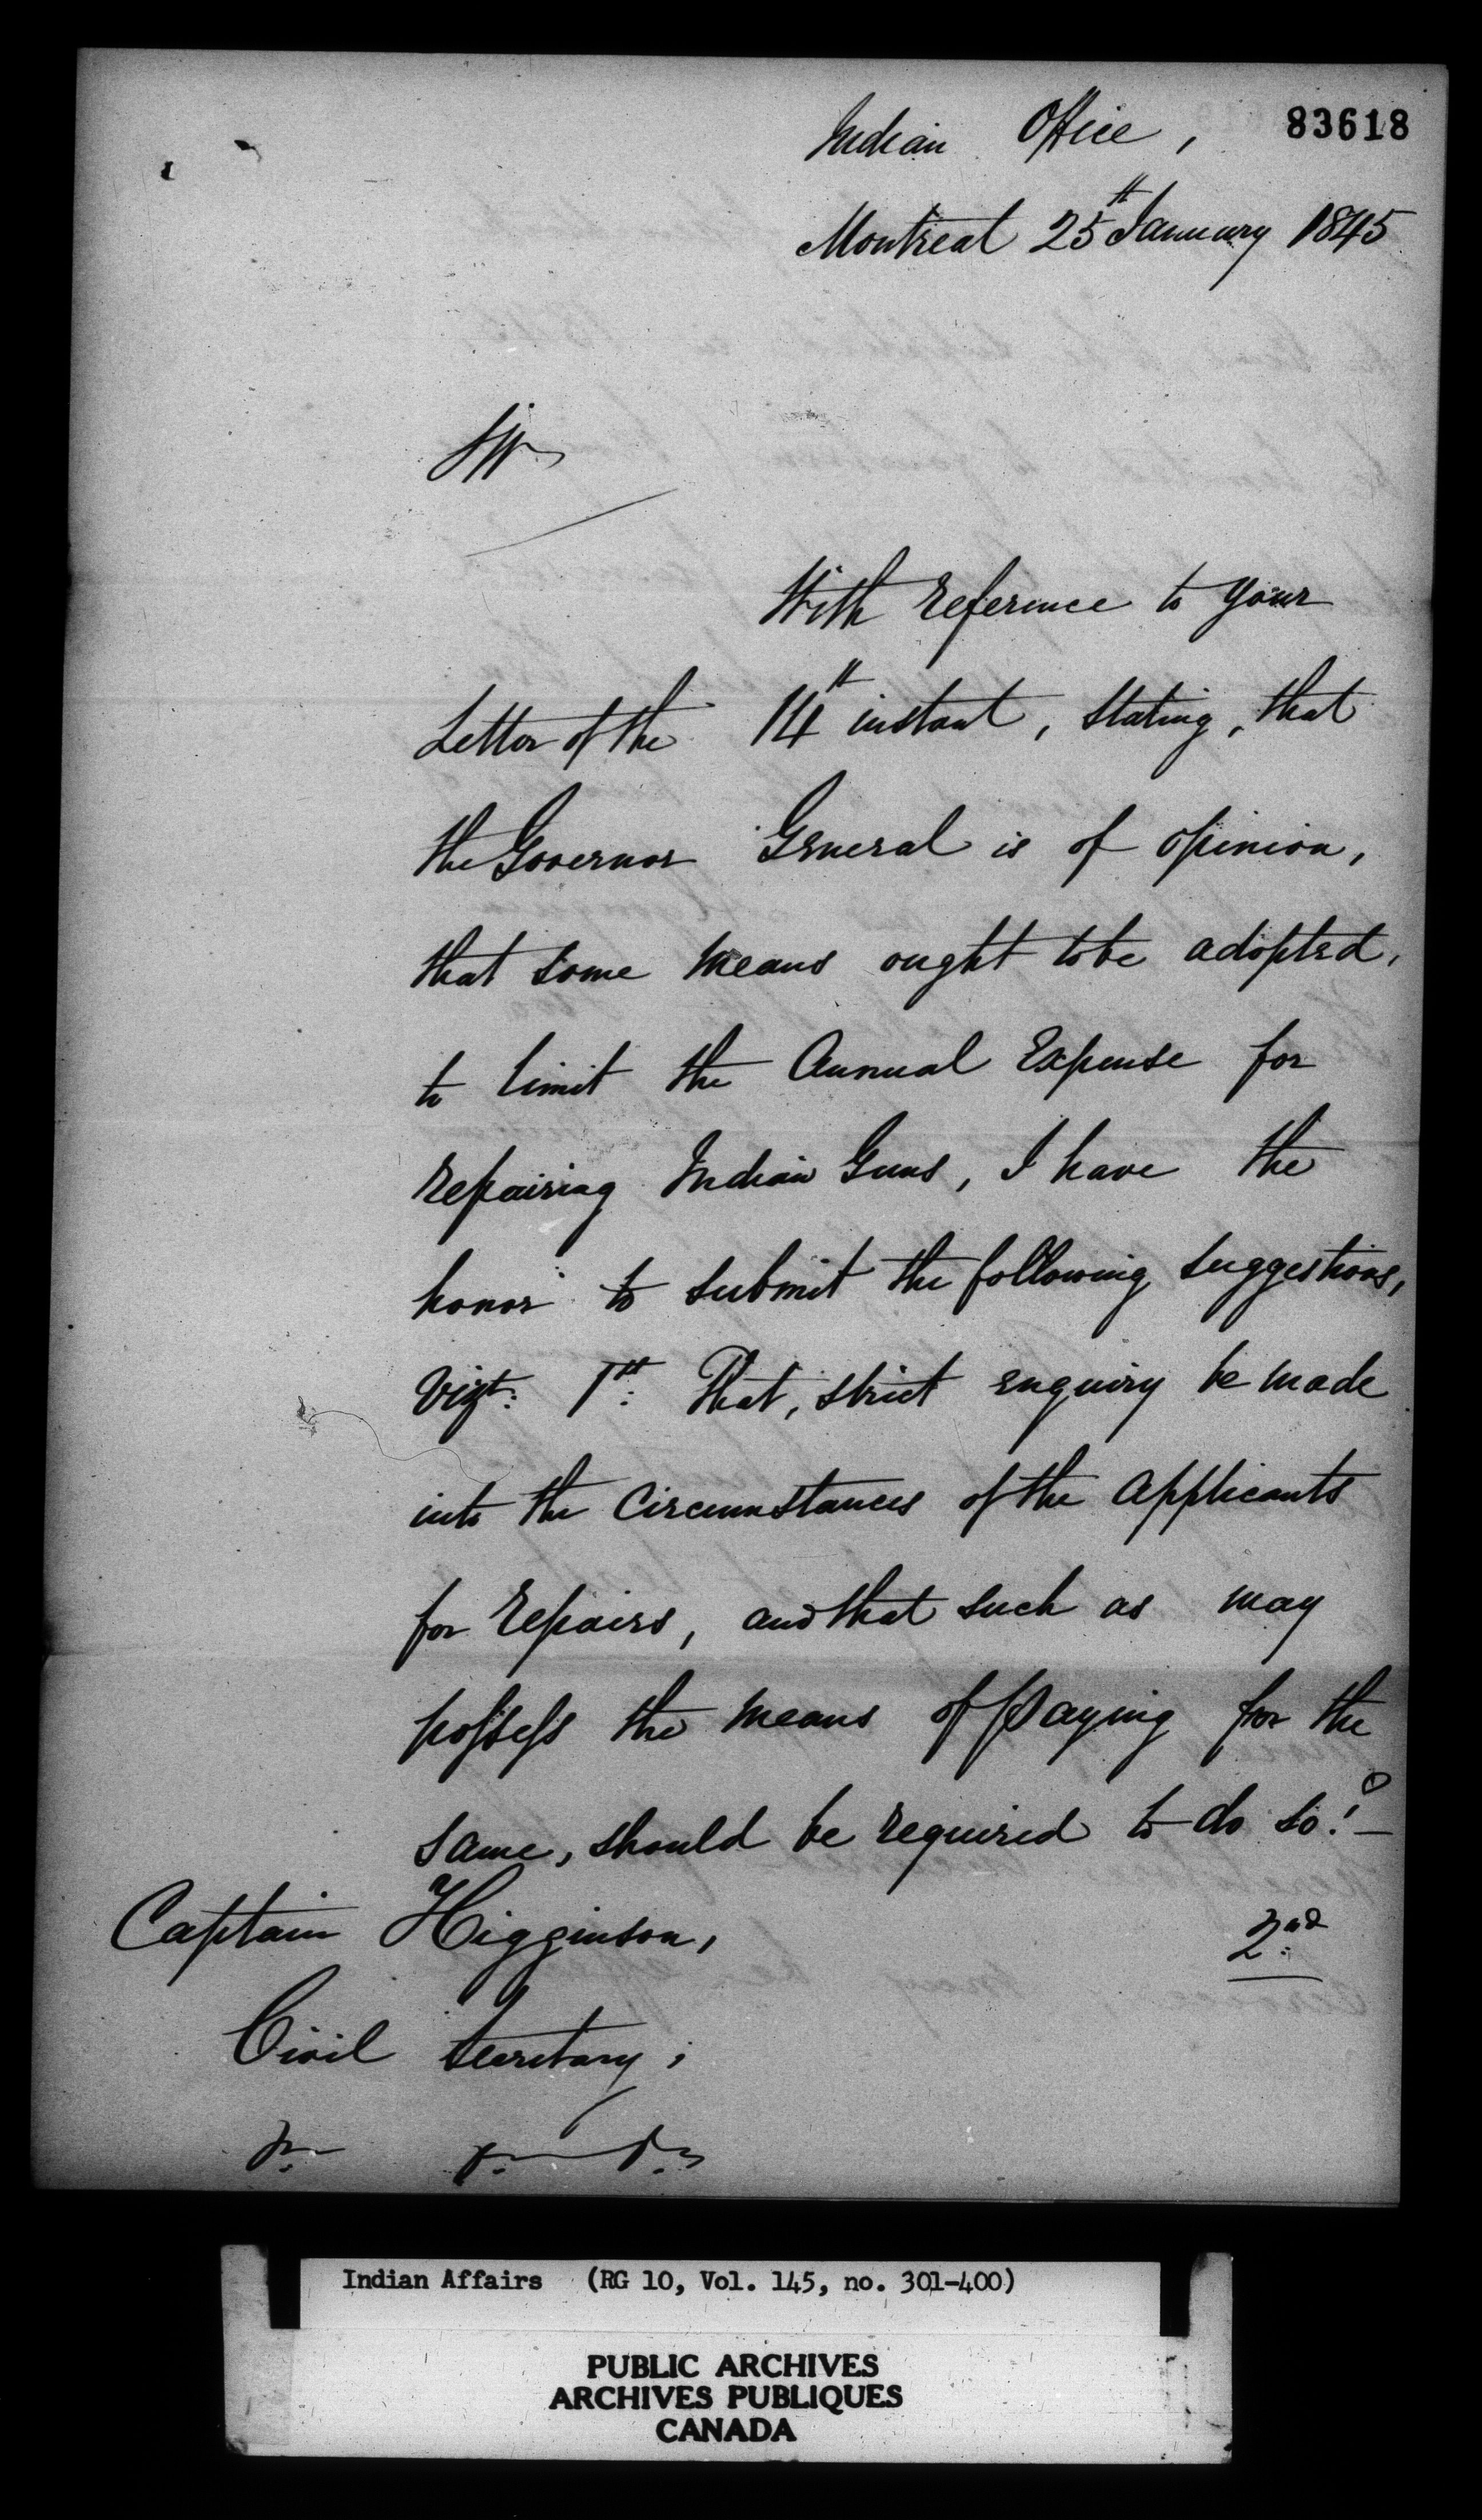 83618
Indian Office,
Montreal 25th January 1845
Sir
With reference to your
Letter of the 14th instant, stating, that
the Governor General is of opinion,
that some means ought to be adopted,
to limit the Annual Expense for
repairing Indian Guns, I have the
honor to submit the following suggestions,
Vizt: 1st: That, strict enquiry be made
into the Circumstances of the applicants
for repairs, and that such as may
possess the means of paying for the
same, should be required to do so!—
2nd:
Captain Higginson,
Civil Secretary,
Indian Affairs (RG 10, Vol. 145, no. 301-400)
PUBLIC ARCHIVES
ARCHIVES PUBLIQUES
CANADA